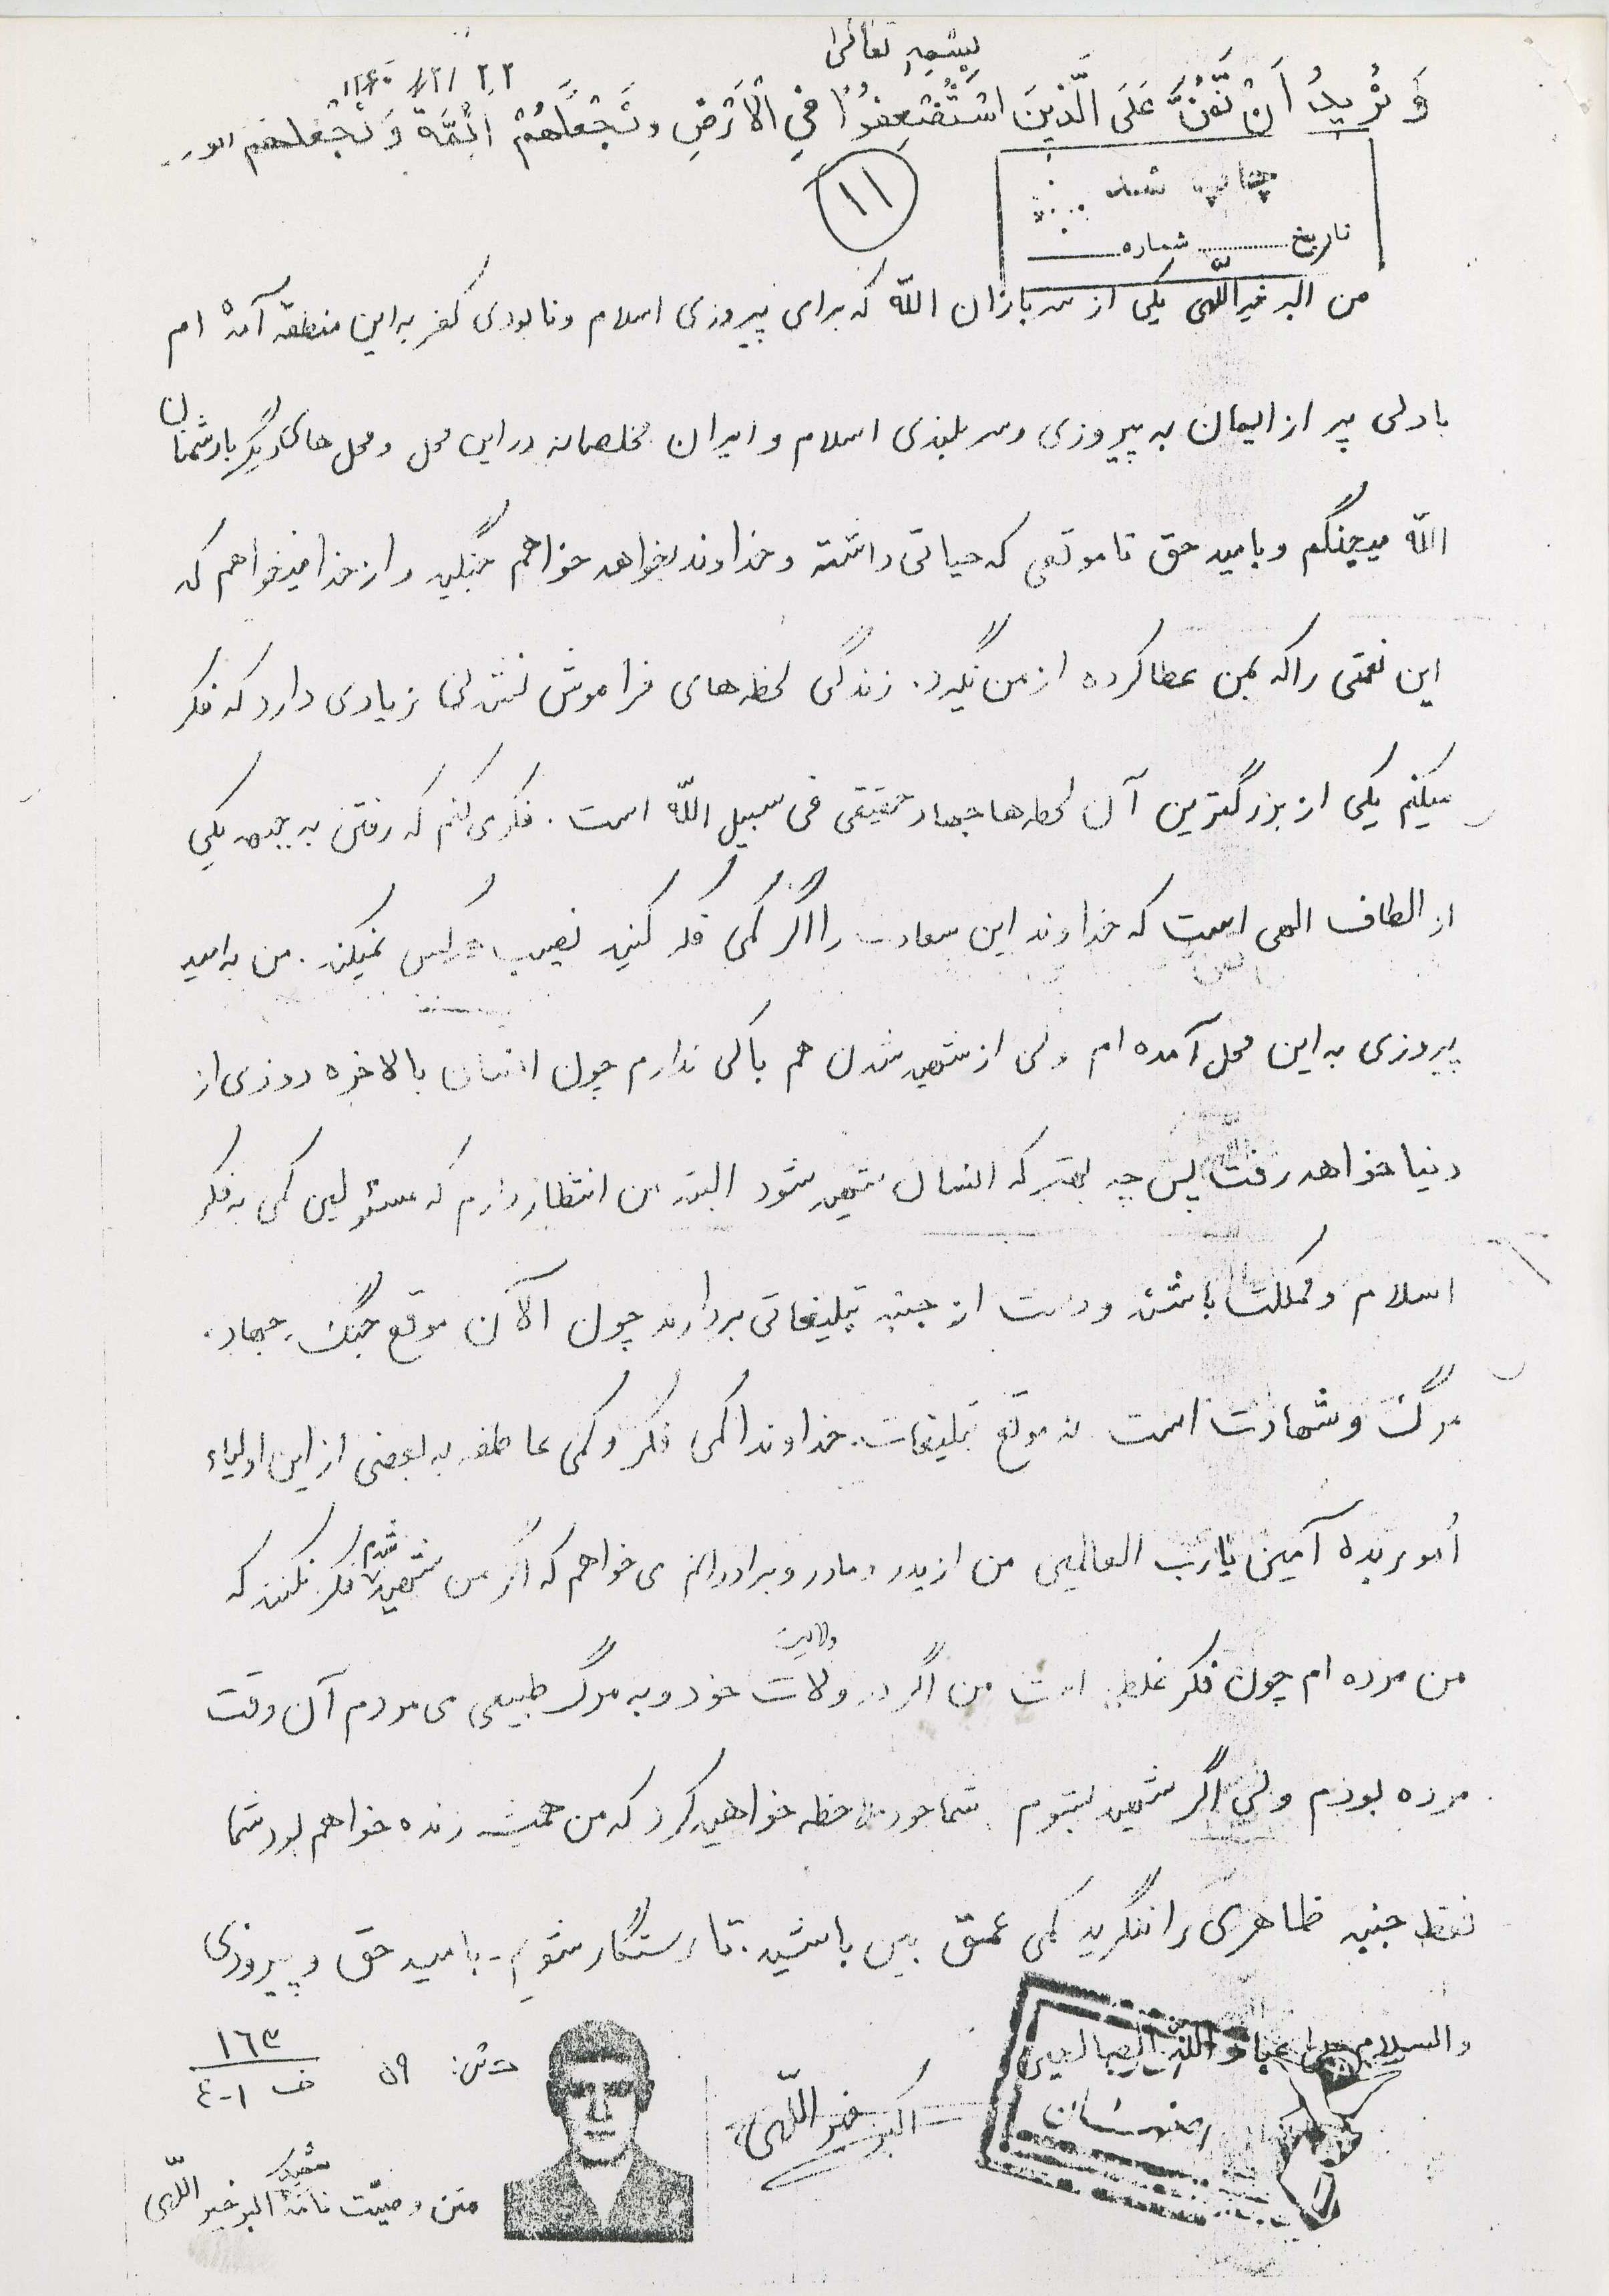 بسمه تعالی
۱۳۶۰/۲/۲۲
وَ نُریدُ اَنْ نَمُنَّ عَلَی الَّذینَ اسْتُضْعِفُوْا فِي الْاَرْضِ وَ نَجْعَلَهُمْ اَئِمَّةً وَ نَجْعَلَهُم الور...
چاپ شد
تاریخ ........ شماره ........
۱۱
من اکبر خیراللهی یکی از سربازان اللّه که برای پیروزی اسلام و نابودی کفر به این منطقه آمده ام
با دلی پر از ایمان به پیروزی و سربلندی اسلام و ایران مخلصانه در این محل و محل های دیگر با دشمنان
اللّه میجنگم و بامید حق تا موقعی که حیاتی داشته و خداوند بخواهد خواهم جنگید و از خدا میخواهم که
این نعمتی را که بمن عطا کرده از من نگیرد. زندگی لحظه های فراموش نشدنی زیادی دارد که فکر
میکنم یکی از بزرگترین آن لحظه ها جهاد حقیقی فی سبیل اللّه است. فکر می کنم که رفتن به جبهه یکی
از الطاف الهی است که خداوند این سعادت را اگر کمی فکر کنید نصیب هر کس نمیکند. من به امید
پیروزی به این محل آمده ام ولی از شهید شدن هم باکی ندارم چون انسان بالاخره روزی از
دنیا خواهد رفت پس چه بهتر که انسان شهید شود البته من انتظار دارم که مسئولین کمی به فکر
اسلام و مملکت باشند و دست از جنبه تبلیغاتی بردارند چون الآن موقع جنگ، جهاد،
مرگ و شهادت است نه موقع تبلیغات. خداوندا کمی فکر و کمی عاطفه به بعضی از این اولیاء
امور بده آمین یا رب العالمین من از پدر و مادر و برادرانم می خواهم که اگر من شهید شدم فکر نکنند که
من مرده ام چون فکر غلط است من اگر در ولات ولایت خود و به مرگ طبیعی می مردم آن وقت
مرده بودم ولی اگر شهید بشوم شما خود ملاحظه خواهید کرد که من همیشه زنده خواهم بود شما
فقط جنبه ظاهری را ننگرید کمی عمق بین باشید. تا رستگار شویم. بامید حق و پیروزی
والسلام علی عباد اللّه الصالحین
اکبر خیراللهی
۵۹
۱۶۳
ف ۱-۴
متن وصیّت نامهٔ شهید اکبر خیر اللّهی